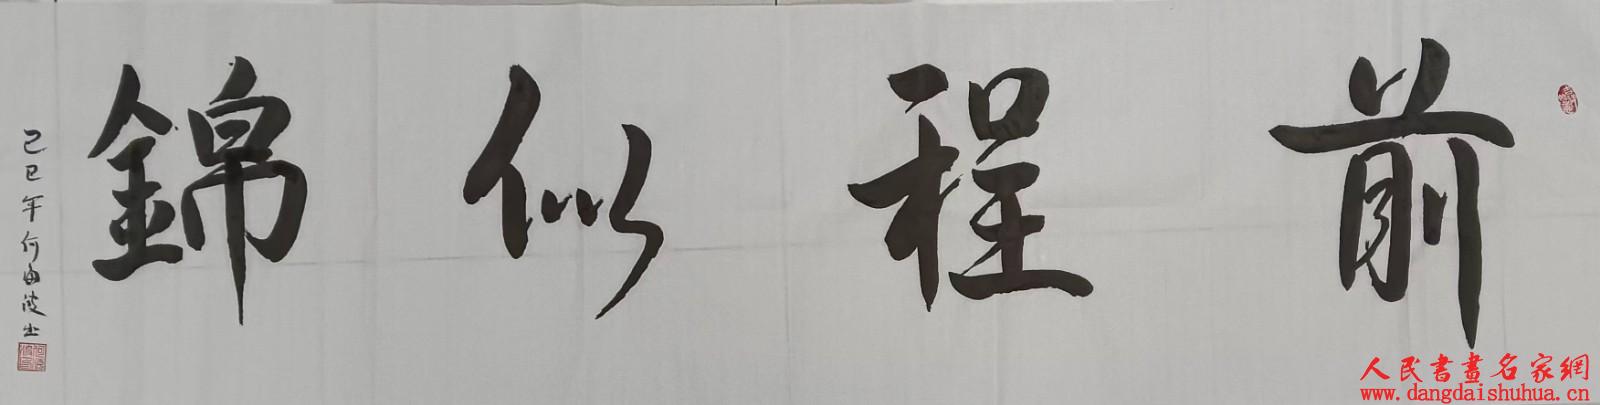 前程似錦
己巳年何海波书
人民書畫名家網
www.dangdaishuhua.cn